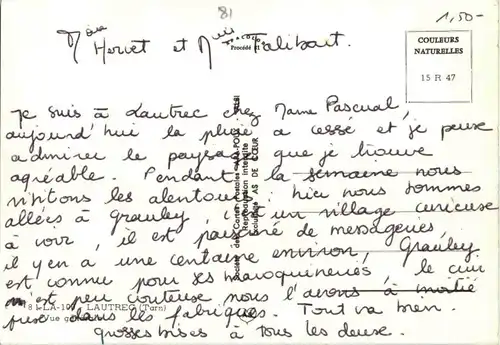 81
1,50-
Mme Hervet et Mlle Falibart.
Procédé
COULEURS
NATURELLES
15 R 47
Je suis à Lautrec chez Mame Pascual,
aujourd'hui la pluie a cessé et je peuse
admirer le paysage que je trouve
agréable. Pendant la semaine nous
visitons les alentours: hier nous sommes
allées à Grauley, c'est un village curieuse
à voir, il est parsemé de messageries,
il y en a une centaine environ, Grauley
est connu pour ses maroquineries, le cuir
est peu couteuse nous l'avons à moitié
prise dans les fabriques. Tout va bien.
Grosses bises à tous les deux.
Reproduction interdite
AS DE CŒUR
LAUTREC (Tarn)